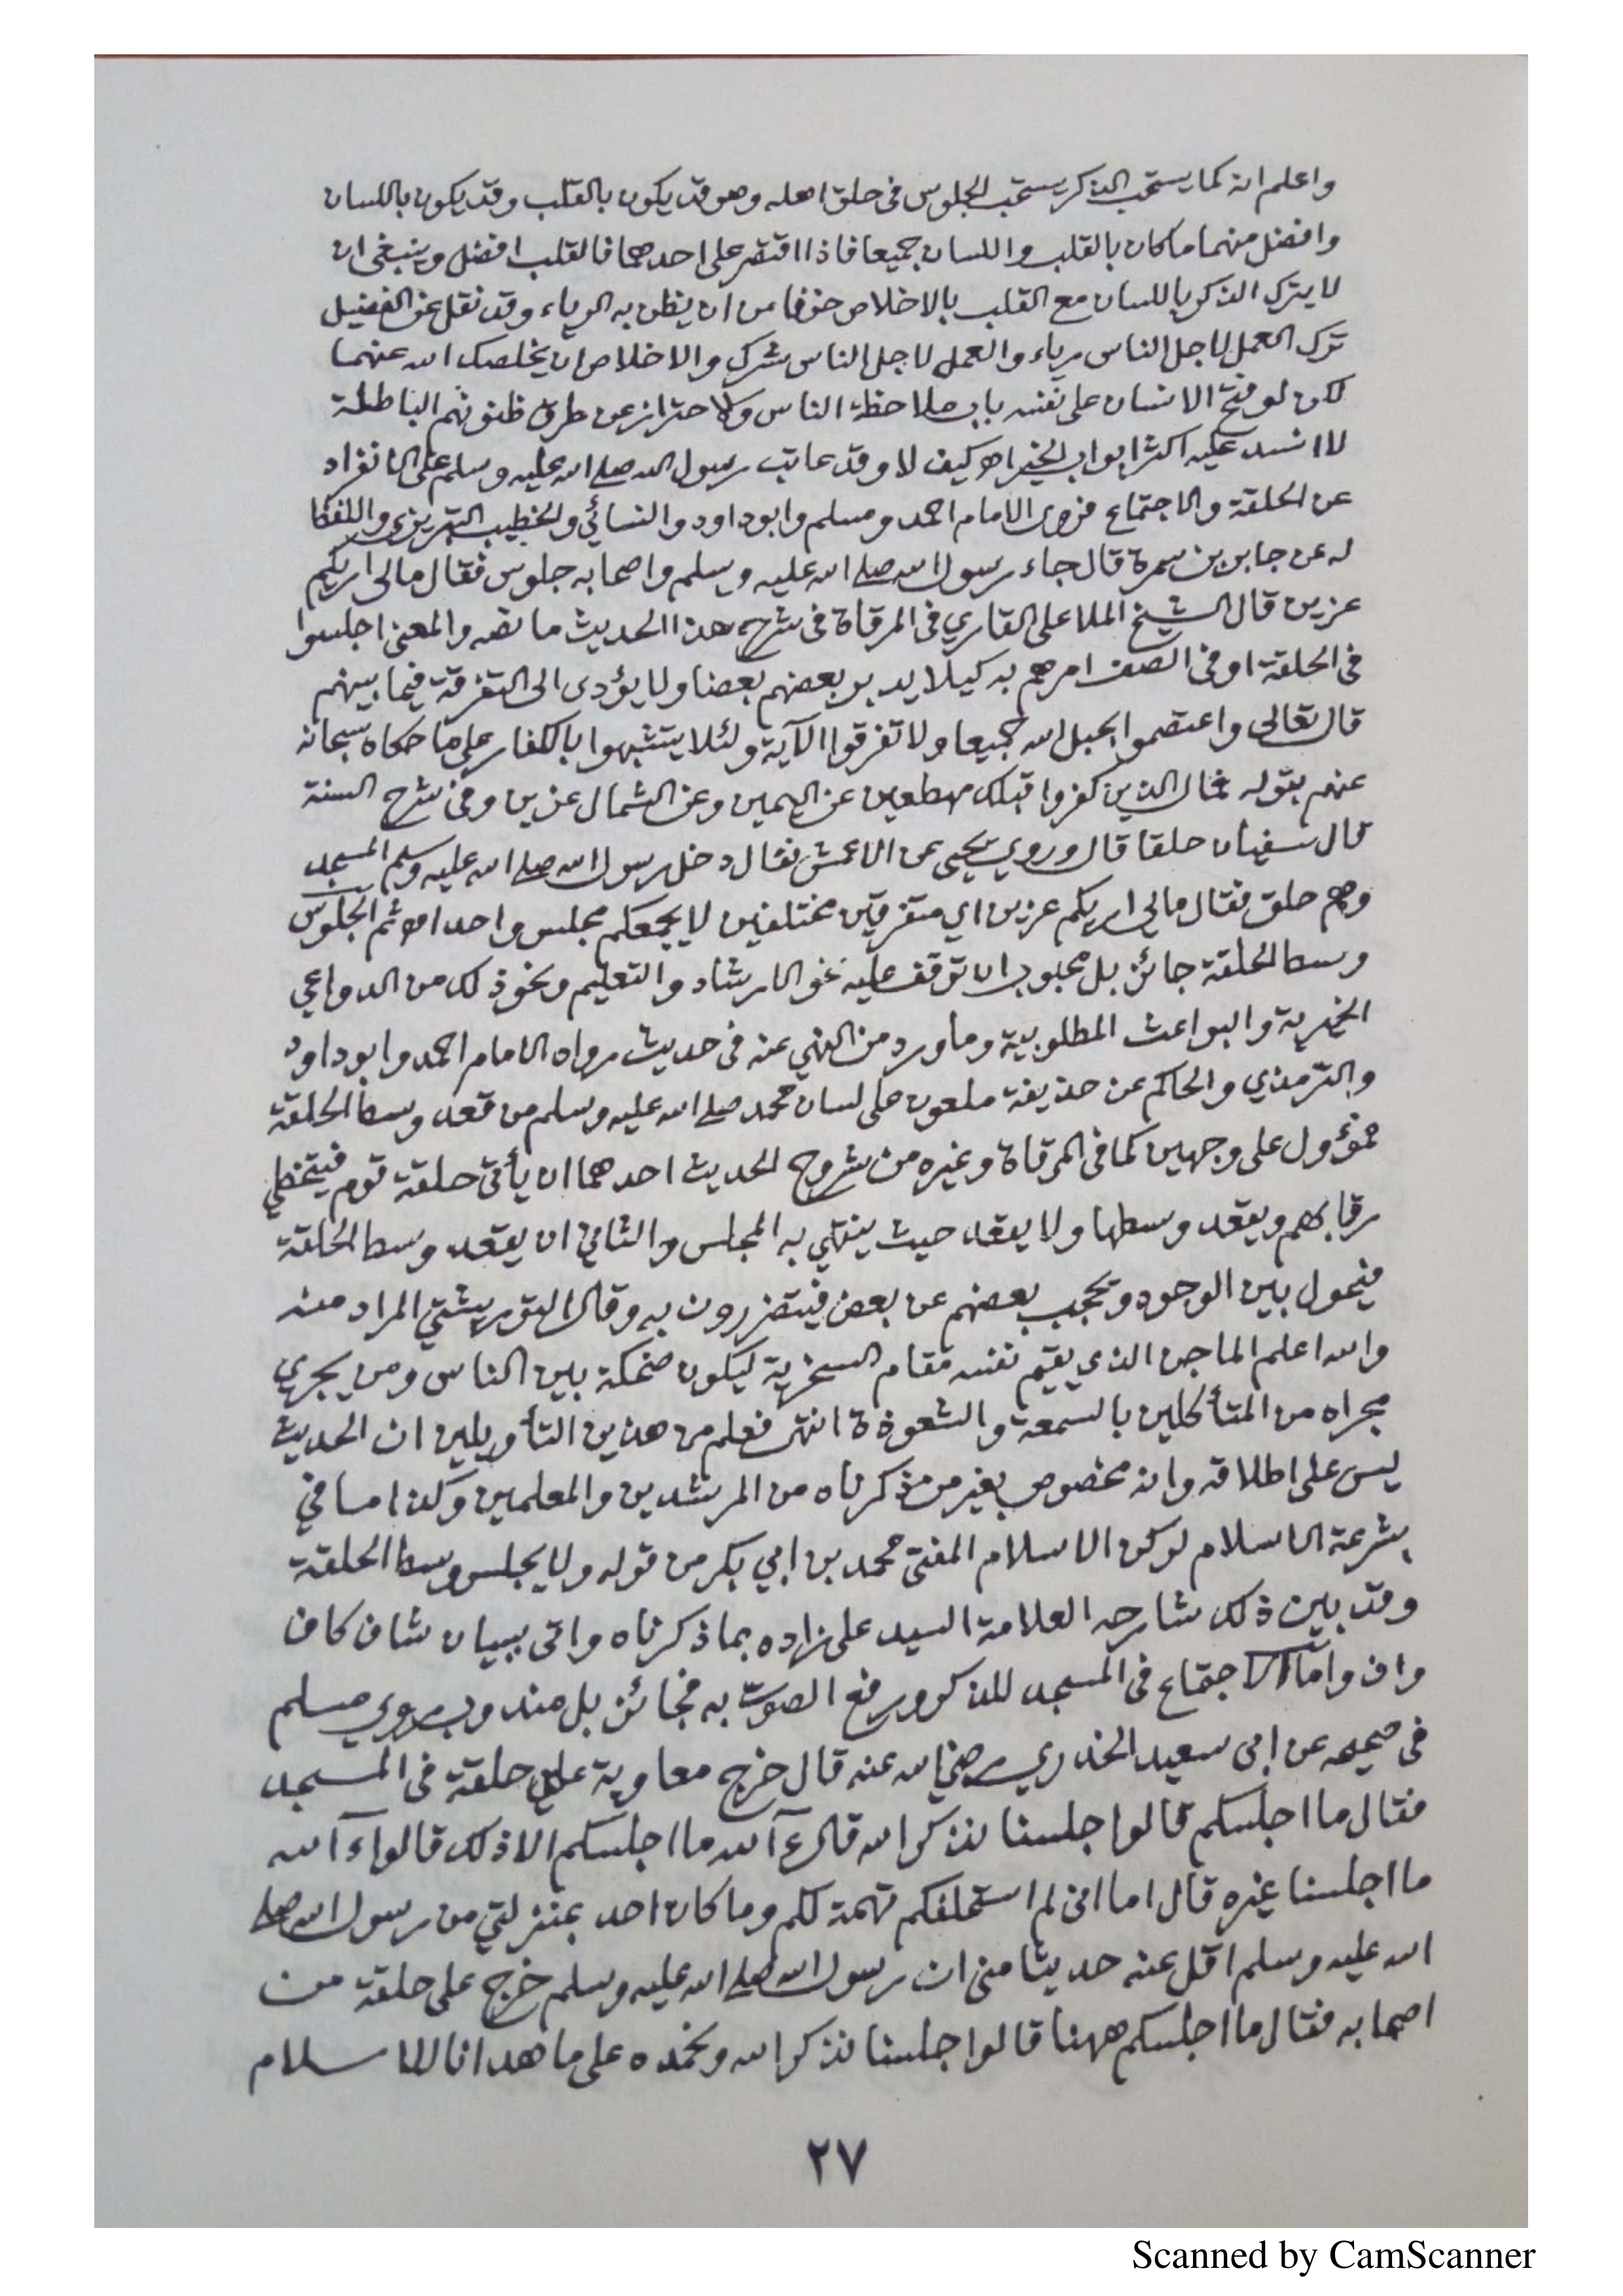 واعلم انه كما يستحب الذكر يستحب الجلوس فى حلق اهله وهو قد يكون بالقلب وقد يكون باللسان
وافضل منهما ما كان بالقلب واللسان جميعا فاذا اقتصر على احدهما فالقلب افضل وينبغى ان
لا يترك الذكر باللسان مع القلب بالاخلاص خوفا من ان يظن به الرياء وقد نقل عن الفضيل
ترك العمل لاجل الناس رياء والعمل لاجل الناس شرك والاخلاص ان يخلصك الله عنهما
لكن لو فتح الانسان على نفسه باب ملاحظة الناس والاحتراز عن طرق ظنونهم الباطلة
لا انسد عليه اكثر ابواب الخير اه كيف لا وقد عاتب رسول الله صلى الله عليه وسلم على الانفراد
عن الحلقة والاجتماع فروى الامام احمد ومسلم وابوداود والنسائي والخطيب التبريزى واللفظ
له عن جابر بن سمرة قال جاء رسول الله صلى الله عليه وسلم واصحابه جلوس فقال مالى اريكم
عزين قال الشيخ الملا على القاري فى المرقاة فى شرح هذا الحديث ما نصه والمعنى اجلسوا
فى الحلقة او فى الصف امرهم به كيلا يدبر بعضهم بعضا ولا يؤدى الى التفرقة فيما بينهم
قال تعالى واعتصموا بحبل الله جميعا ولا تفرقوا الآية ولئلا يتشبهوا بالكفار على ما حكاه سبحانه
عنهم بقوله فمال الذين كفروا قبلك مهطعين عن اليمين وعن الشمال عزين وفى شرح السنة
قال سفيان حلقا قال وروي يحيى عن الاعمش فقال دخل رسول الله صلى الله عليه وسلم المسجد
وهم حلق فقال مالى اريكم عزين اي متفرقين مختلفين لا يجمعكم مجلس واحد اه ثم الجلوس
وسط الحلقة جائز بل محبوب ان توقف عليه نحو الارشاد والتعليم ونحو ذلك من الدواعي
الخيرية والبواعث المطلوبية وما ورد من النهي عنه فى حديث رواه الامام احمد وابوداود
والترمذي والحاكم عن حذيفة ملعون على لسان محمد صلى الله عليه وسلم من قعد وسط الحلقة
فمؤول على وجهين كما فى المرقاة وغيره من شروح الحديث احدهما ان يأتى حلقة قوم فيتخطي
رقابهم ويقعد وسطها ولا يقعد حيث ينتهي به المجلس والثاني ان يقعد وسط الحلقة
فيحول بين الوجوه ويحجب بعضهم عن بعض فيتضررون به وقال التوربشتي المراد منه
والله اعلم الماجن الذي يقيم نفسه مقام السخرية ليكون ضحكة بين الناس ومن يجري
مجراه من المتأكلين بالسمعة والشعوذة انتهى فعلم من هذين التأويلين ان الحديث
ليس على اطلاقه وانه مخصوص بغير من ذكرناه من المرشدين والمعلمين وكذا ما في
شرعة الاسلام لركن الاسلام المفتى محمد بن ابي بكر من قوله ولا يجلس وسط الحلقة
وقد بين ذلك شارحه العلامة السيد على زاده بما ذكرناه واتى ببيان شاف كاف
واف واما الاجتماع فى المسجد للذكر ورفع الصوت به فجائز بل مندوب روي مسلم
فى صحيحه عن ابى سعيد الخدري رضي الله عنه قال خرج معاوية على حلقة فى المسجد
فقال ما اجلسكم قالوا جلسنا نذكر الله قال ءآلله ما اجلسكم الا ذلك قالوا ءآلله
ما اجلسنا غيره قال اما انى لم استحلفكم تهمة لكم وما كان احد بمنزلتي من رسول الله صلى
الله عليه وسلم اقل عنه حديثا منى ان رسول الله صلى الله عليه وسلم خرج على حلقة من
اصحابه فقال ما اجلسكم ههنا قالوا جلسنا نذكر الله ونحمده على ما هدانا للاسلام
٢٧
Scanned by CamScanner